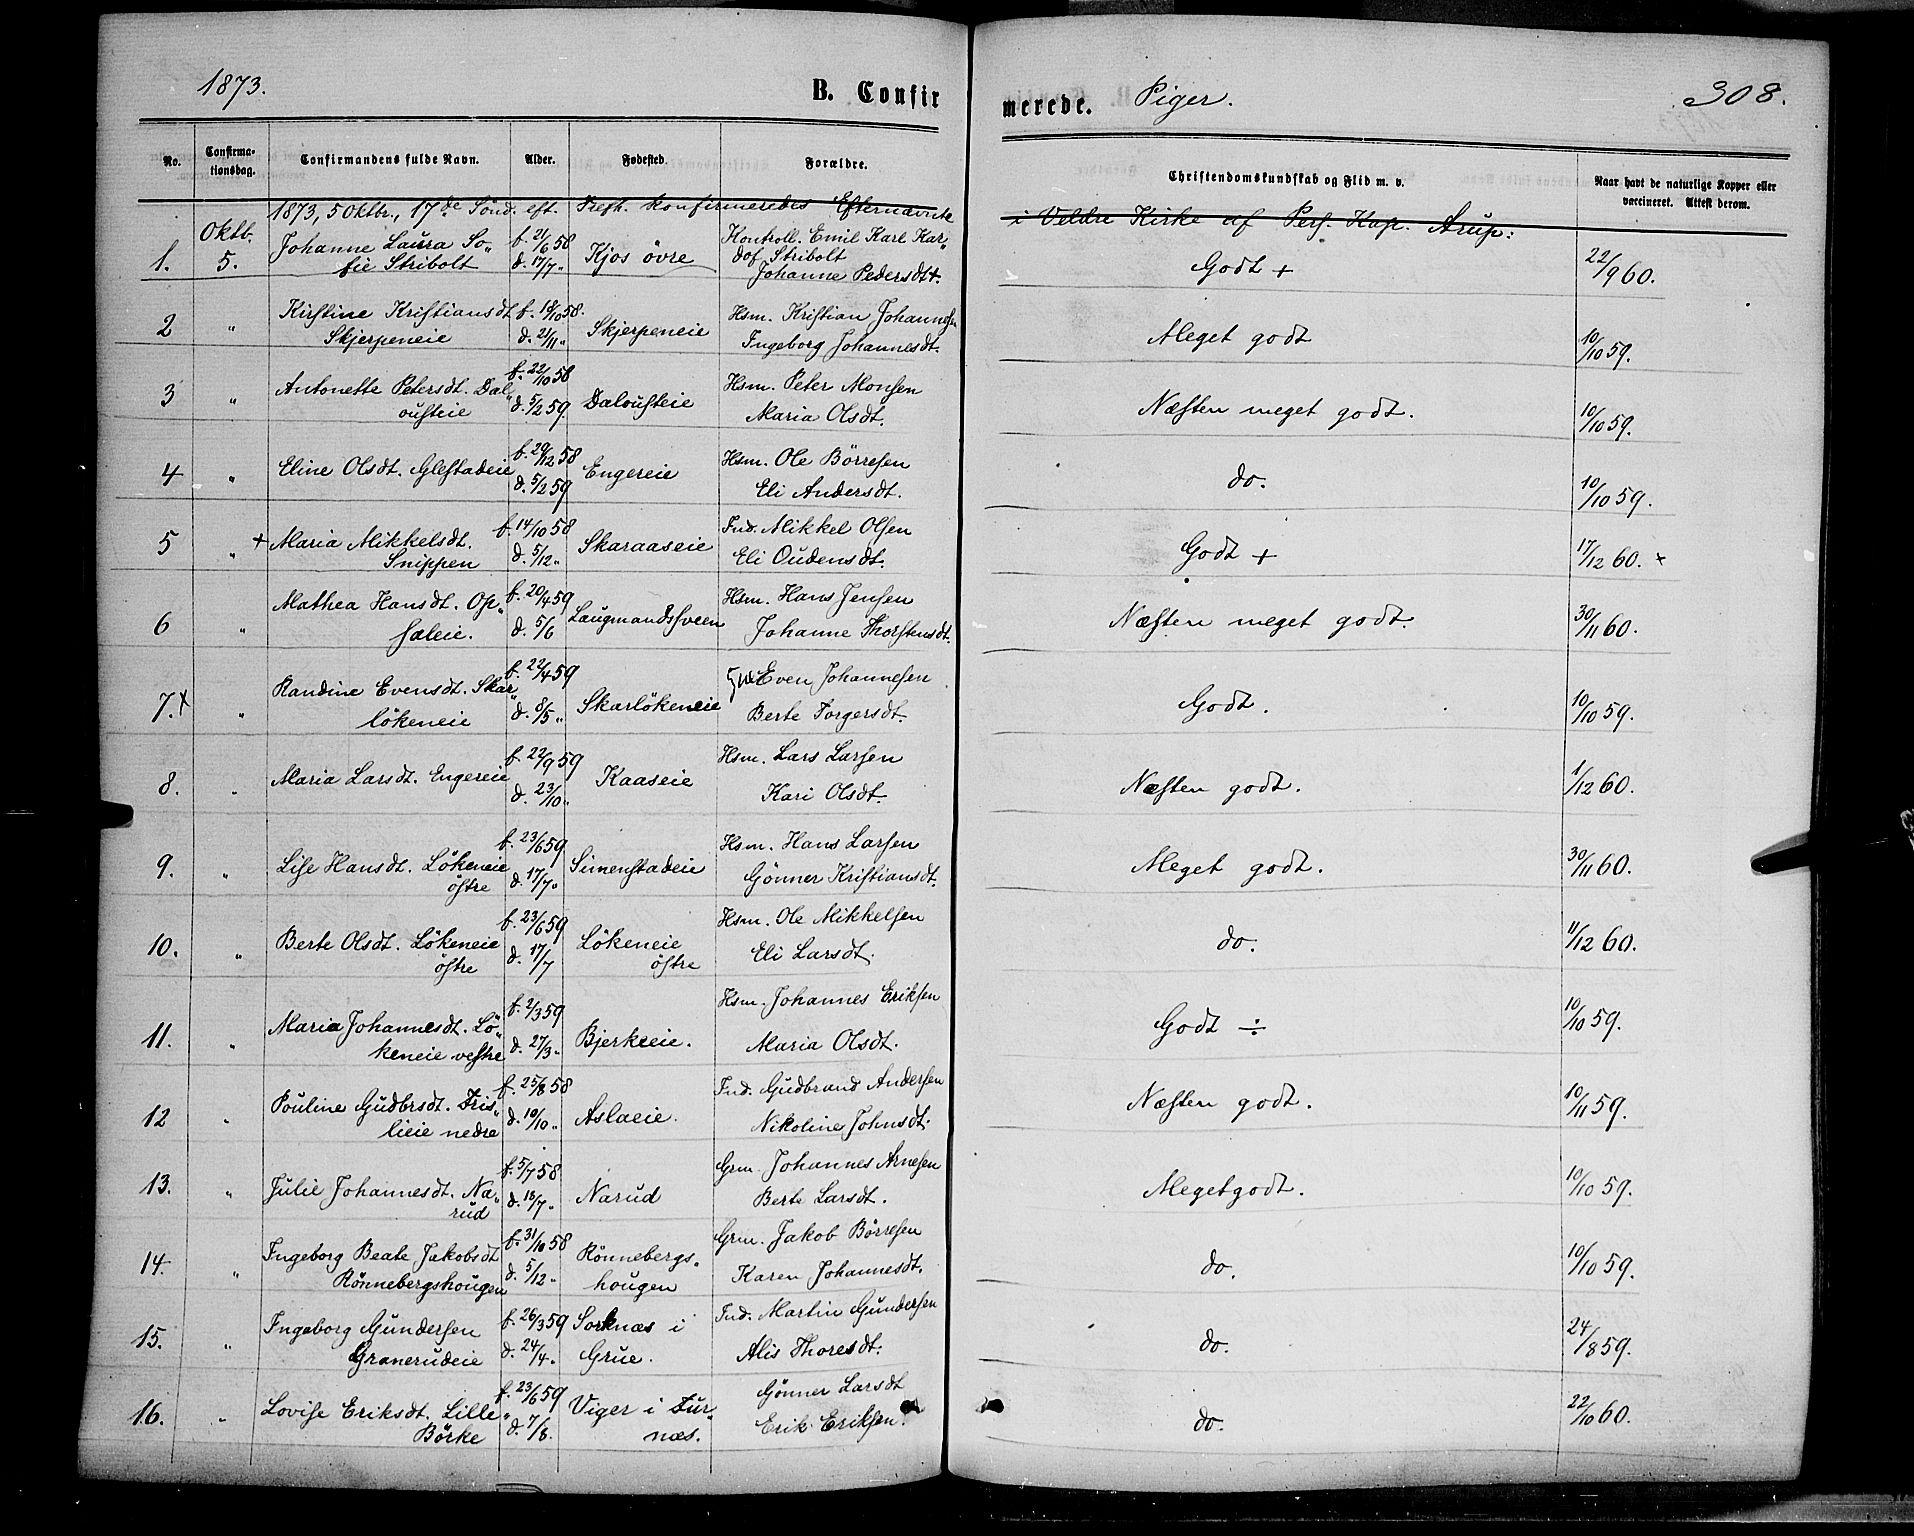 1873.
B. Confir
merede. Piger.
308.
No.
Confirma-
tionsdag.
Confirmandens fulde Navn.
Alder.
Fødested.
Forældre.
Christendomskundskab og Flid m. v.
Naar havt de naturlige Kopper eller
vaccineret. Attest derom.
1873, 5 Oktbr., 17de Sönd. eft. Tref. konfirmeredes Efternævnte
i Veldre Kirke af Pers. Kap. Arup:
1. Oktb. 5. Johanne Laura So„
fie Stribolt
f. 21/6 58
d. 17/7 „
Kjos øvre
Kontroll. Emil Karl Kar„
dof Stribolt
Johanne Pedersdt+.
Godt +
22/9 60.
2 „ Kirstine Kristiansdt.
Skjerpeneie
f. 18/10 58.
d. 21/11 „
Skjerpeneie
Hsm. Kristian Johannesen
Ingeborg Johannesdt.
Meget godt
10/10 59.
3 „ Antonette Petersdt. Dal„
ousteie
f. 22/10 58
d. 5/2 59.
Dalousteie
Hsm. Peter Monsen
Maria Olsdt.
Næsten meget godt.
10/10 59.
4 „ Eline Olsdt. Glestadeie
f. 29/12 58
d. 5/2 59
Engereie
Hsm. Ole Börresen
Eli Andersdt.
do.
10/10 59.
5 „ + Maria Mikkelsdt.
Snippen
f. 14/10 58
d. 5/12 „
Skaraaseie
Ind. Mikkel Olsen
Eli Oudensdt.
Godt +
17/12 60. x
6 „ Mathea Hansdt. Op„
saleie.
f. 20/4 59
d. 5/6
Laugmandssveen
Hsm. Hans Jensen
Johanne Thorstensdt.
Næsten meget godt.
30/11 60.
7. x „ Randine Evensdt. Skar„
lökeneie
f. 22/4 59
d. 8/5 „
Skarlökeneie
Even Johannesen
Berte Torgersdt.
Godt.
10/10 59.
8. „ Maria Larsdt. Engereie
f. 22/9 59
d. 23/10 „
Kaaseie
Hsm. Lars Larsen
Kari Olsdt.
Næsten godt.
1/12 60.
9. „ Lise Hansdt. Lökeneie
östre
f. 23/6 59
d. 17/7 „
Simenstadeie
Hsm. Hans Larsen
Gönner Kristiansdt.
Meget godt.
30/11 60.
10. „ Berte Olsdt. Lökeneie
östre
f. 23/6 59
d. 17/7
Lökeneie
östre
Hsm. Ole Mikkelsen
Eli Larsdt.
do.
11/12 60.
11. „ Maria Johannesdt. Lö„
keneie vestre
f. 2/3 59
d. 27/3 „
Bjerkeeie.
Hsm. Johannes Eriksen
Maria Olsdt.
Godt ÷
10/10 59.
12 „ Pouline Gudbrsdt. Fris„
lieie nedre
f. 25/8 58
d. 10/10 „
Aslaeie.
Ind. Gudbrand Andersen
Nikoline Johnsdt.
Næsten godt.
10/11 59.
13. „ Julie Johannesdt. Na„
rud
f. 5/7 58
d. 18/7 „
Narud
Grm. Johannes Arnesen
Berte Larsdt.
Megetgodt.
10/10 59.
14. „ Ingeborg Beate Jakobsdt
Rönnebergshougen
f. 31/10 58
d. 5/12 „
Rönnebergs„
hougen
Grm. Jakob Börresen
Karen Johannesdt.
do.
10/10 59.
15. „ Ingeborg Gundersen
Granerudeie
f. 26/3 59
d. 24/4 „
Sorknæs i
Grue.
Ind. Martin Gundersen
Alis Thoresdt.
do.
24/8 59.
16. „ Lovise Eriksdt. Lille„
Börke
f. 23/6 59
d. 7/8.
Viger i Fur„
næs.
Gönner Larsdt
Erik Eriksen.
do.
22/10 60.